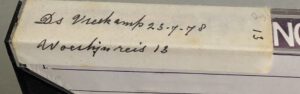 Ds Vreekamp 23-7-78
Woestijnreis 13
13
NO